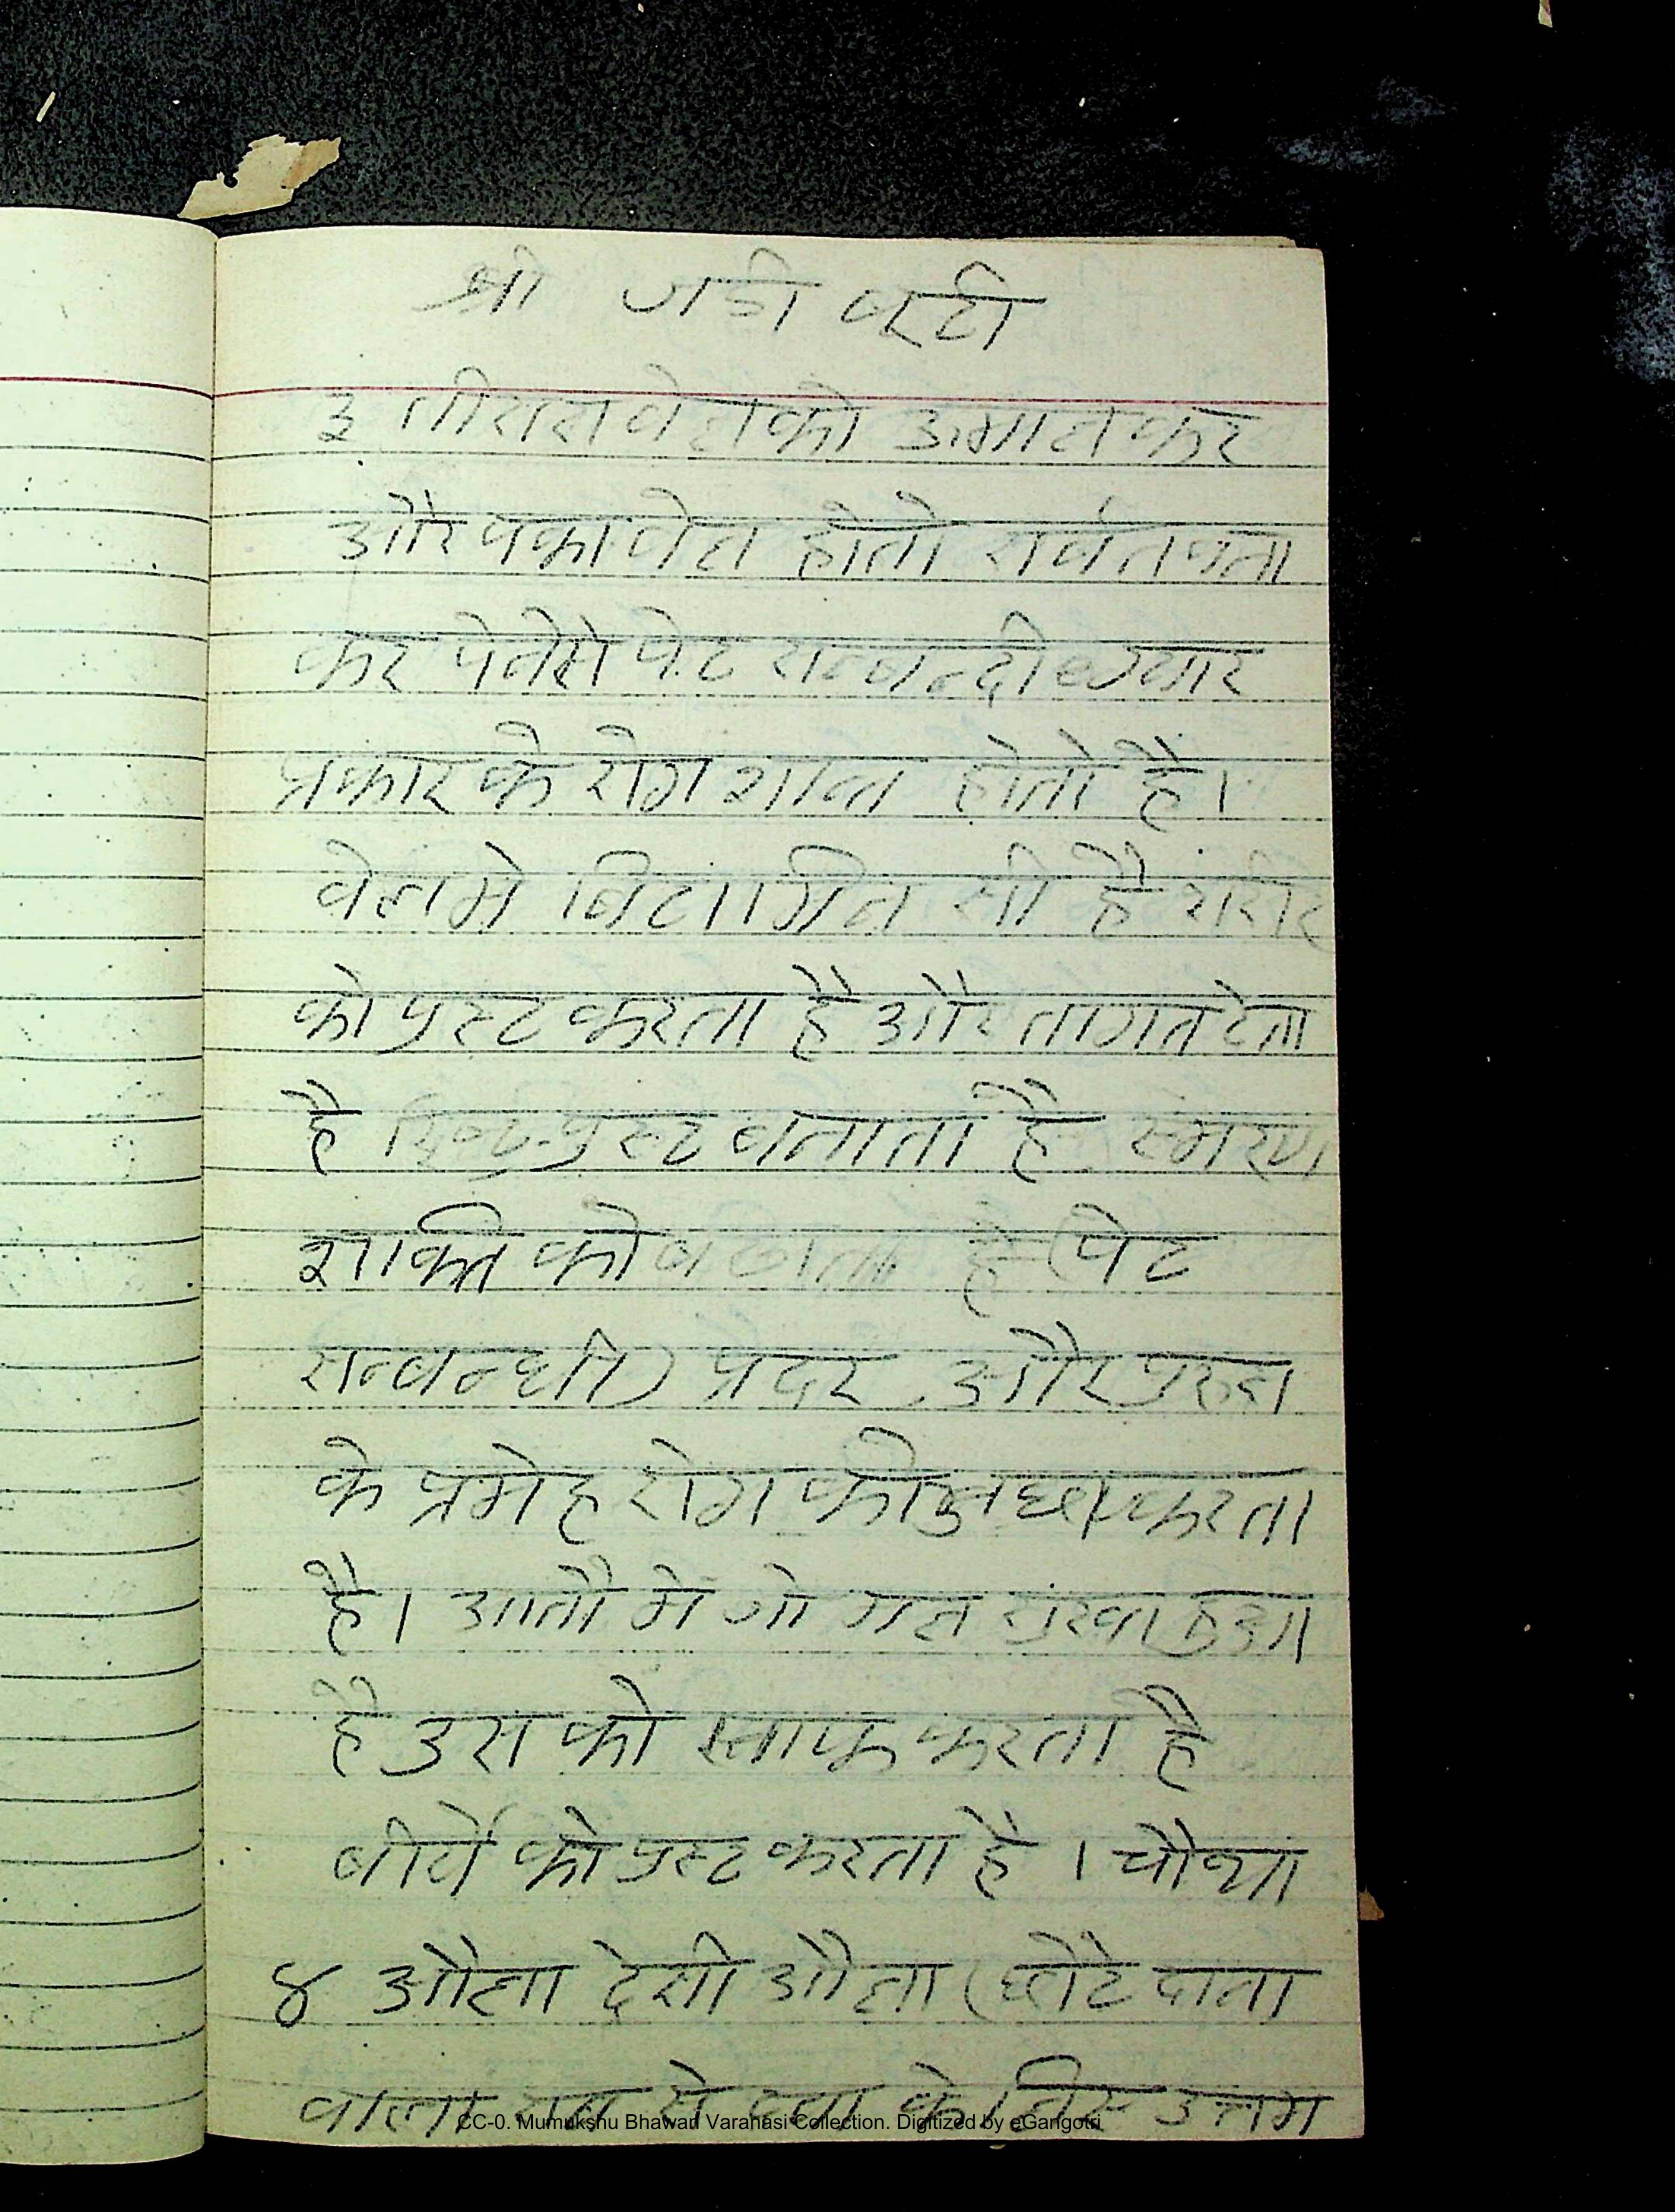 श्री जडी बुटी
३ तीसरा वेल को उगाल कर
और पका वेल होतो सर्वत बना
कर पेनेसे पेट सम्बन्दी
प्रकार के रोग शान्त होतो है।
वेलमे बिटामिन सी है शरीर
को पुस्ट करता है और तागत देता
है पुस्ट बनाता है स्मरण
शक्ति को बढाता है (पेट
सम्बन्धी) प्रदर और पुरुस
के प्रमेह रोग को अच्छा करता
है। आतौ मे जो मल सुखा हुआ
है उस को साफ करता है
बीर्य को पुस्ट करता है । चौथा
४ औला देसी औला (छोटे दाना
वाला सब से दवा के लिए उत्तम
CC-0. Mumukshu Bhawan Varanasi Collection. Digitized by eGangotri